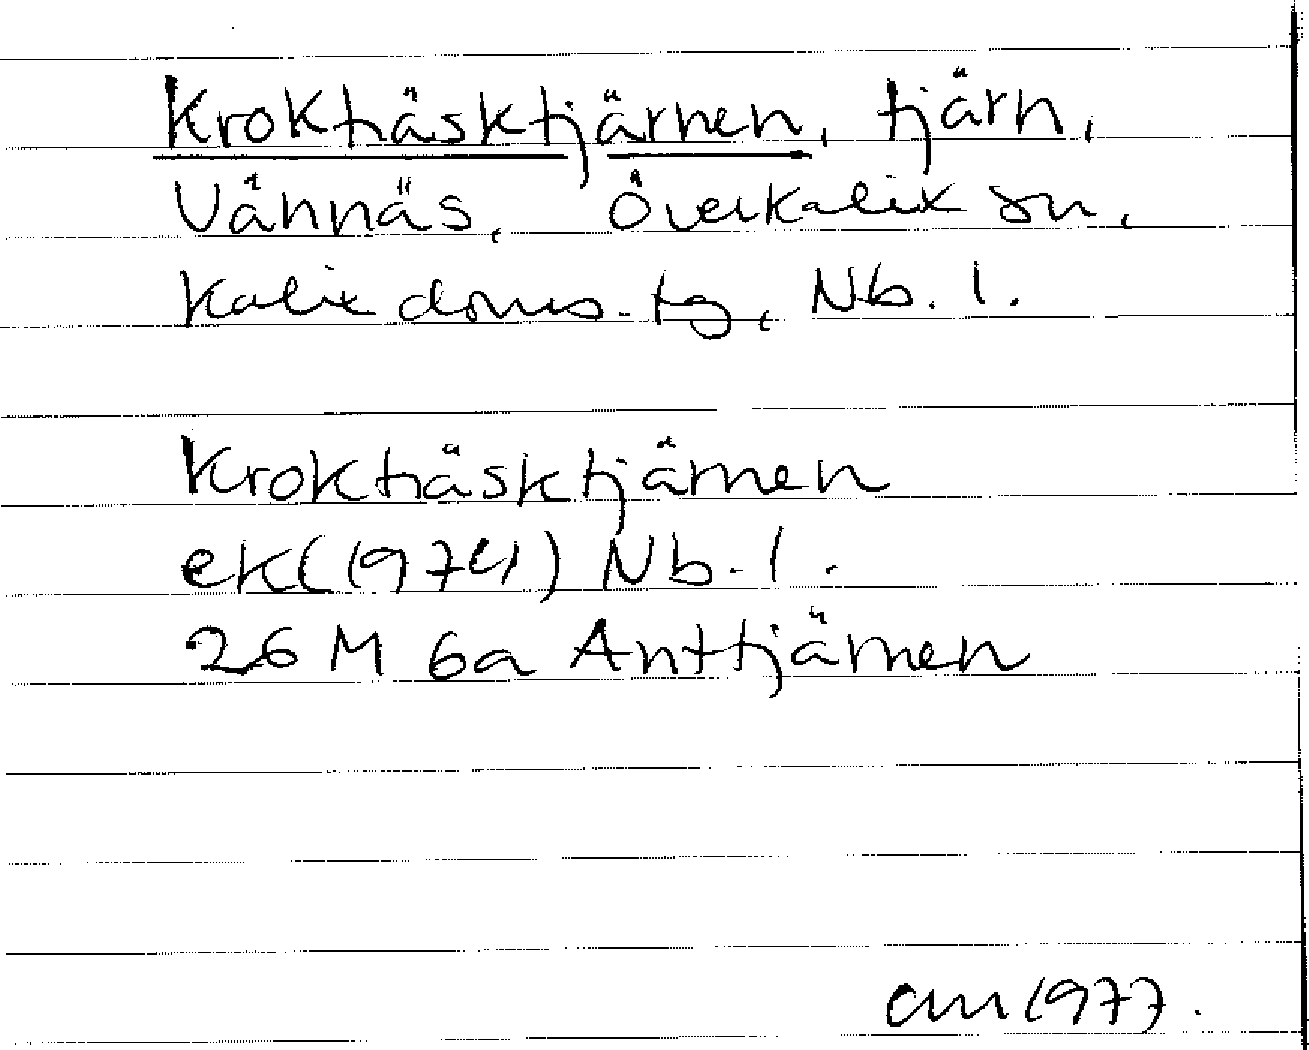 Kroktäsktjärnen, tjärn,
Vännäs, Överkalix sn,
Kalix doms. tg, Nb. l.
Kroktäsktjärnen
ek (1974) Nb. l.
26 M 6a Anttjärnen
am 1977.